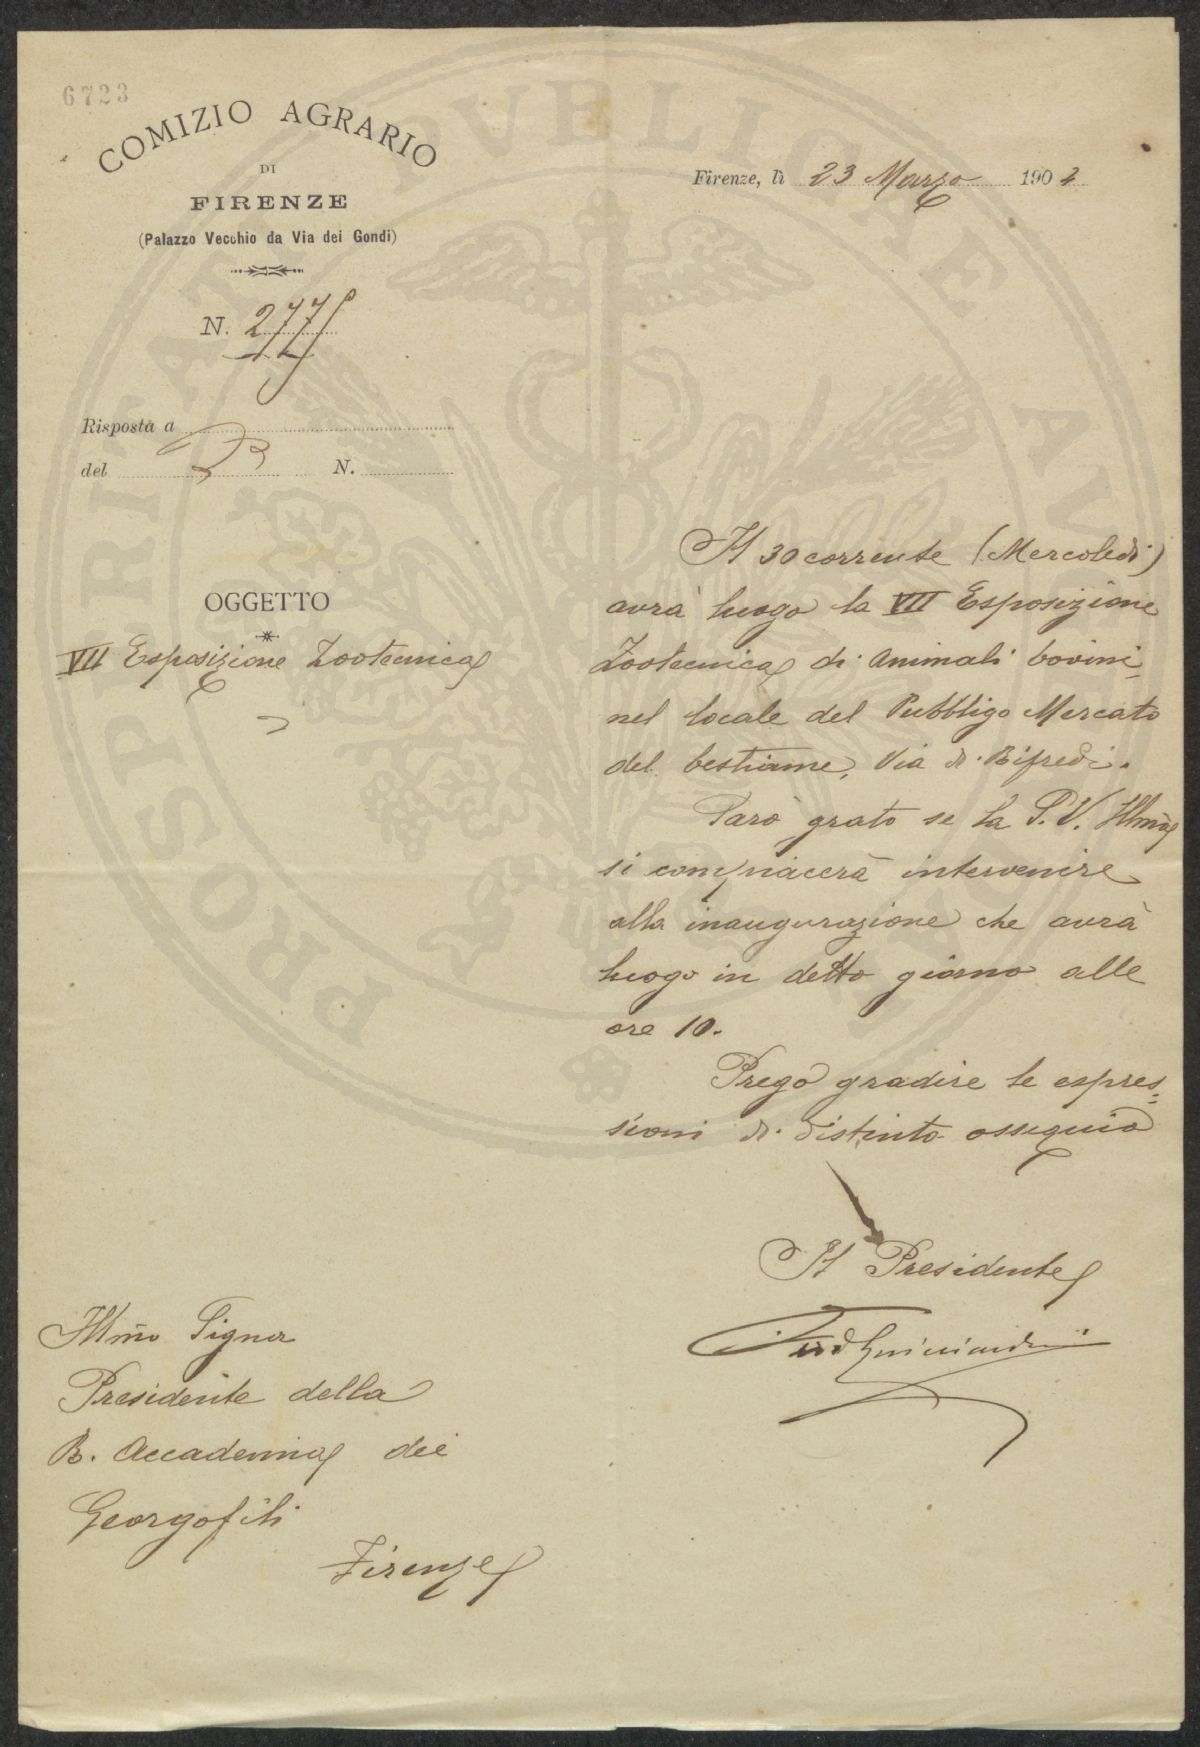 6723
COMIZIO AGRARIO
DI
FIRENZE
(Palazzo Vecchio da Via dei Gondi)
Firenze, lì 23 Marzo 1904
N.
Risposta a
del N.
OGGETTO
VII Esposizione Zootecnica
Il 30 corrente (Mercoledì)
avrà luogo la VII Esposizione
Zootecnica di animali bovini
nel locale del Pubblico Mercato
del bestiame, Via di Rifredi.
Sarò grato se la S. V. Illma
si compiacerà intervenire
alla inaugurazione che avrà
luogo in detto giorno alle
ore 10.
Prego gradire le espres=
sioni di distinto ossequio
Il Presidente
Guicciardini
Illmo Signor
Presidente della
R. Accademia dei
Georgofili
Firenze
PROSPERITATI PVBLICAE AVGENDAE